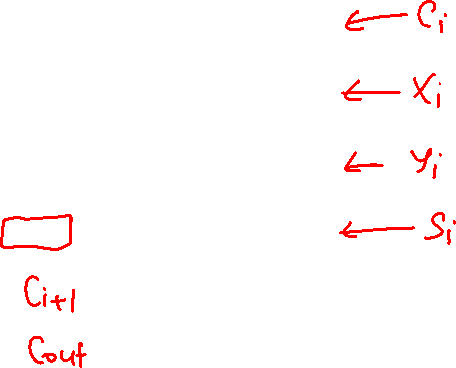 Ci
Xi
yi
Si
Ci+1
Cout